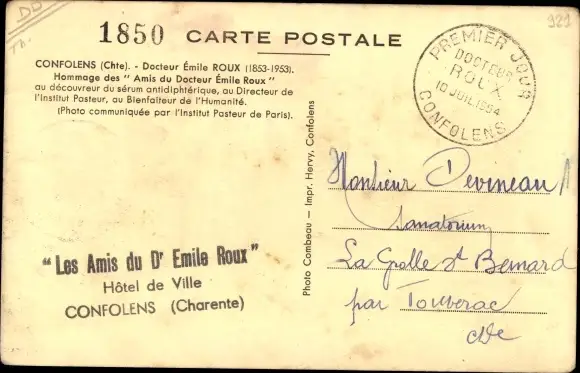 DD
Th.
1850 CARTE POSTALE
921
CONFOLENS (Chte). - Docteur Émile ROUX (1853-1953).
Hommage des " Amis du Docteur Émile Roux "
au découvreur du sérum antidiphtérique, au Directeur de
l'Institut Pasteur, au Bienfaiteur de l'Humanité.
(Photo communiquée par l'Institut Pasteur de Paris).
PREMIER JOUR
DOCTEUR
ROUX
10 JUIL 1954
CONFOLENS
Photo Combeau — Impr. Hervy, Confolens
Monsieur Devineau
Sanatorium
La Grolle St Bernard
par Touverac
Cte
" Les Amis du Dr Emile Roux "
Hôtel de Ville
CONFOLENS (Charente)